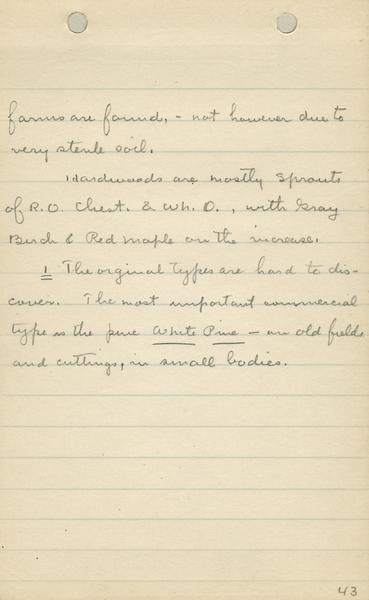 farms are found, - not however due to
very sterile soil.
Hardwoods are mostly sprouts
of R.O. Chest. & Wh. O., with Gray
Birch & Red maple on the increase.
1 The orginal types are hard to dis-
cover. The most important commercial
type is the pure White Pine - on old fields
and cuttings, in small bodies.
43